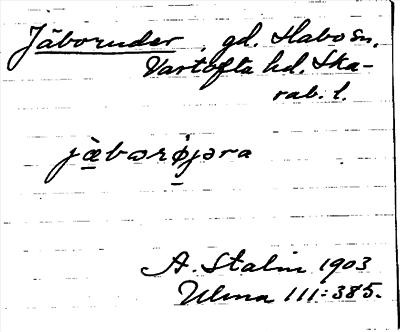 Jäboruder, gd. Habo sn.
Vartofta hd. Ska-
rab. l.
jæ̀bɔrø̀jəra
A. Stalin 1903
Ulma 111:385.